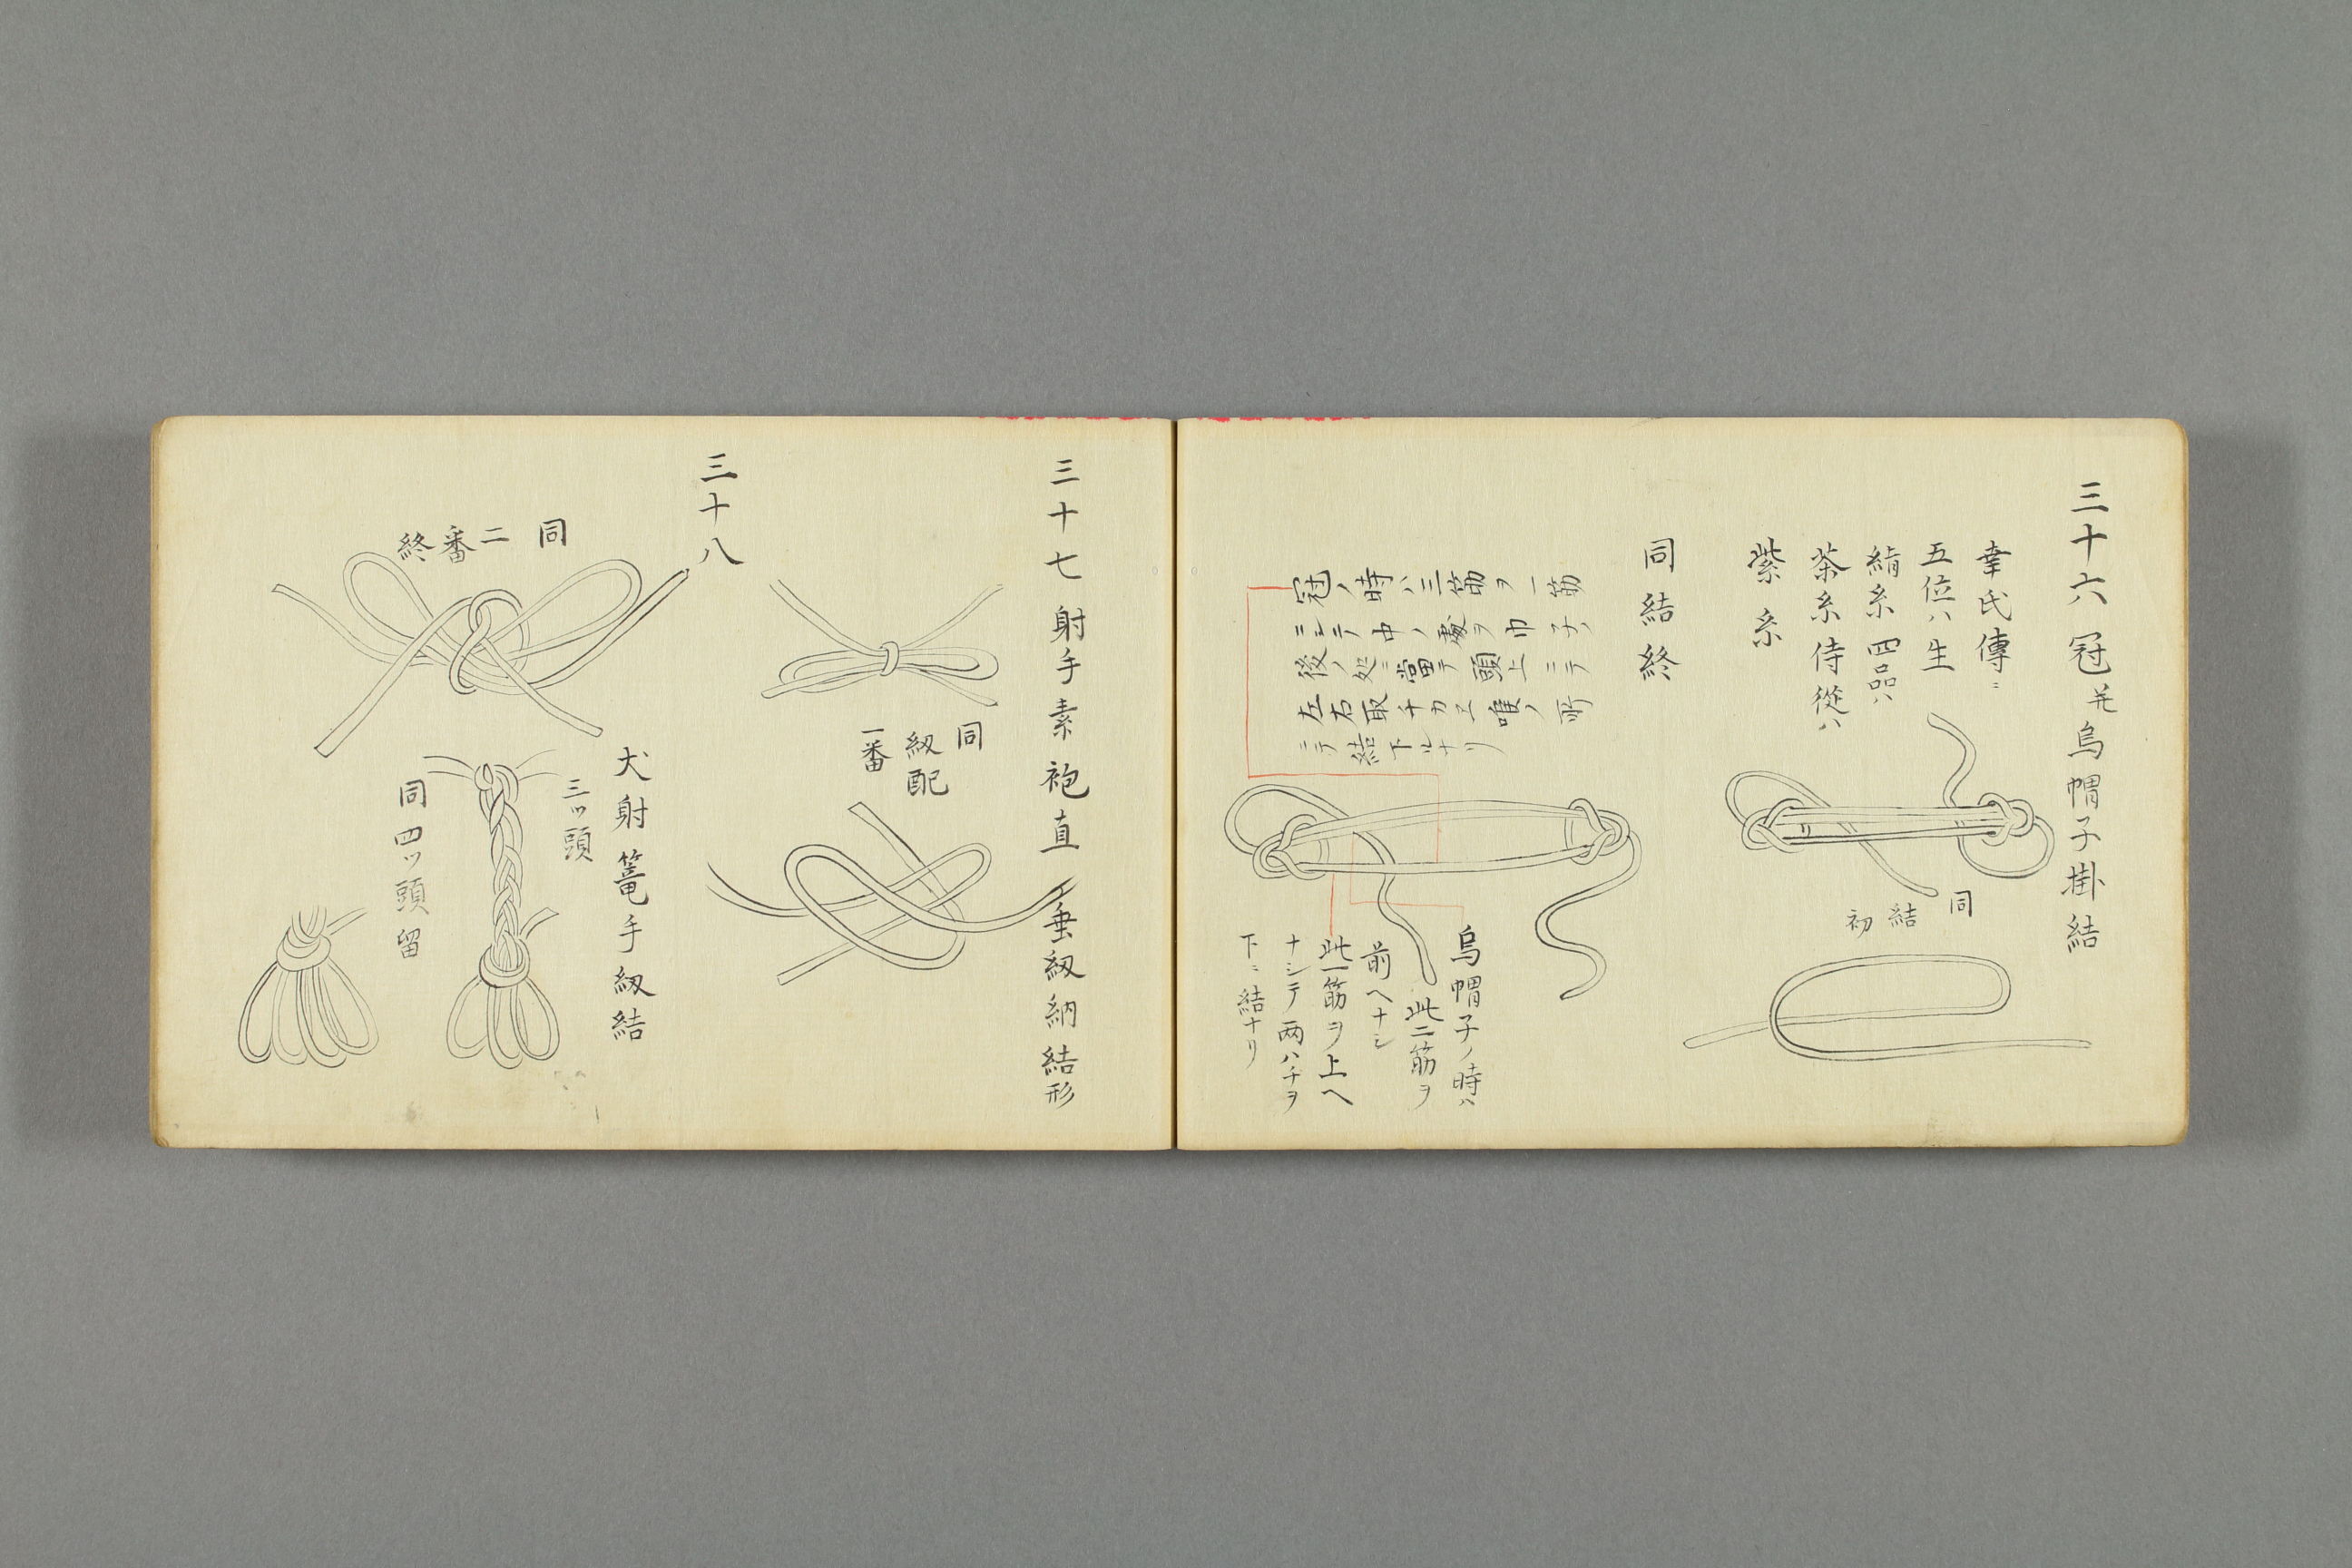 三十六 冠并烏帽子掛結
幸氏傳ニ
五位ハ生
絹糸四品ハ
茶糸侍従ハ
紫糸
同
結
初
同結終
冠ノ時ハ三筋ヲ一筋
ニシテ中ノ處ヲ巾子ノ
後ノ処ニ當テ頭上ニテ
左右取チカヱ唯ノ所
ニテ結下ルナリ
烏帽子ノ時ハ
此二筋ヲ
前ヘナシ
此一筋ヲ上ヘ
ナシテ両ハチヲ
下ニ結ナリ
三十七 射手素袍直垂紐納結形
同
紐配
一番
三十八
犬射篭手紐結
同二番終
三ツ頭
同四ツ頭留